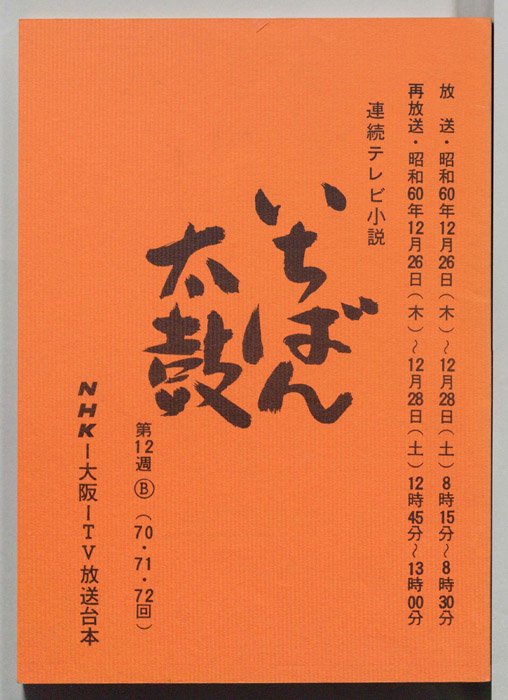 放　送・昭和60年12月26日（木）〜12月28日（土）8時15分〜8時30分
再放送・昭和60年12月26日（木）〜12月28日（土）12時45分〜13時00分
連続テレビ小説
いちばん
太鼓
第12週Ⓑ（70・71・72回）
NHK－大阪－TV放送台本